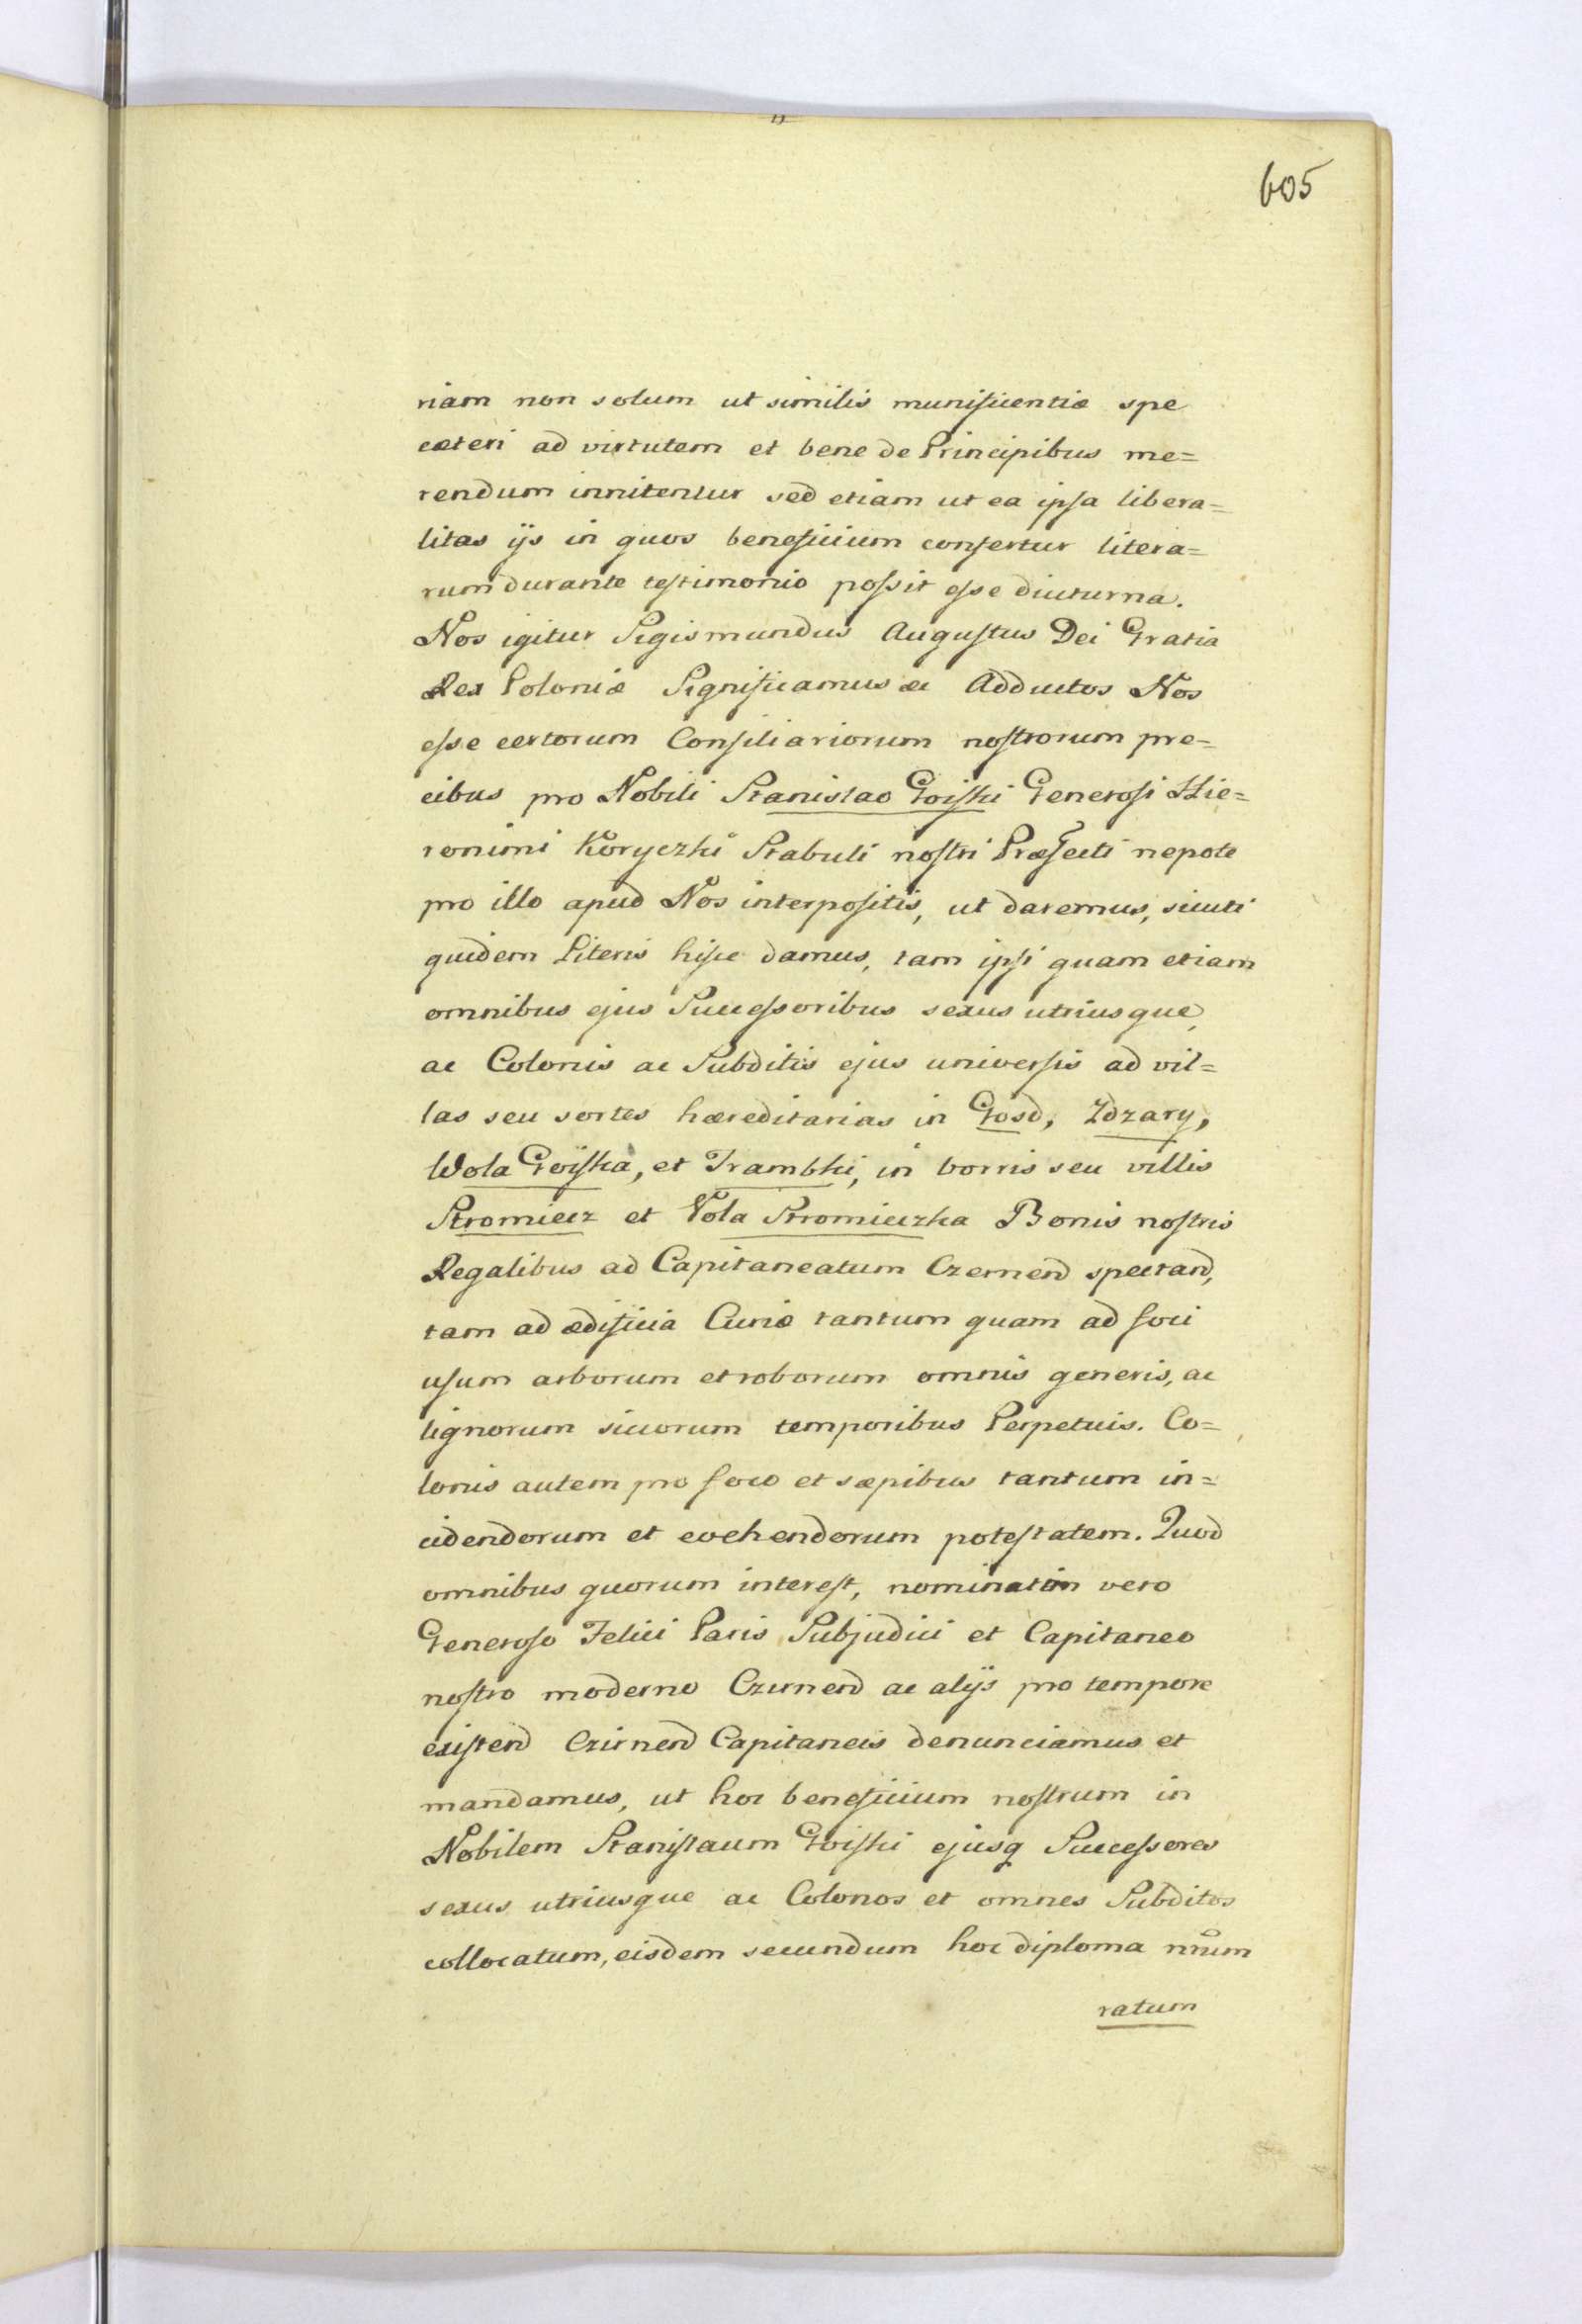 605
riam non solum ut similis munificentiæ spe
cæteri ad virtutem et bene de Principibus me=
rendum innitentur sed etiam ut ea ipsa libera=
litas ijs in quos beneficium confertur litera=
rum durante testimonio possit esse diuturna.
Nos igitur Sigismundus Augustus Dei Gratia
Rex Poloniæ Significamus &c Adductos Nos
esse certorum Consiliariorum nostrorum pre=
cibus pro Nobili Stanislao Goiski Generosi Hie=
ronimi Koryczki Stabuli nostri Præfecti nepote
pro illo apud Nos interpositis, ut daremus, sicuti
quidem Literis hisce damus, tam ipsi quam etiam
omnibus ejus Successoribus sexus utriusque,
ac Colonis ac Subditis ejus universis ad vil=
las seu sortes hæreditarias in Gosd, Zdzary,
Wola Goiska, et Trambki, in borris seu villis
Stromiecz et Vola Stromieczka Bonis nostris
Regalibus ad Capitaneatum Czernend spectand,
tam ad ædificia Curiæ tantum quam ad foci
usum arborum et roborum omnis generis, ac
lignorum siccorum temporibus Perpetuis. Co=
lonis autem pro foco et sæpibus tantum in=
cidendorum et evehendorum potestatem. Quod
omnibus quorum interest, nominatim vero
Generoso Felici Paris Subjudici et Capitaneo
nostro moderno Czirnend ac alijs pro tempore
existend Czirnend Capitaneis denunciamus et
mandamus, ut hoc beneficium nostrum in
Nobilem Stanislaum Goiski ejusq Successores
sexus utriusque ac Colonos et omnes Subditos
collocatum, eisdem secundum hoc diploma nrum
ratum